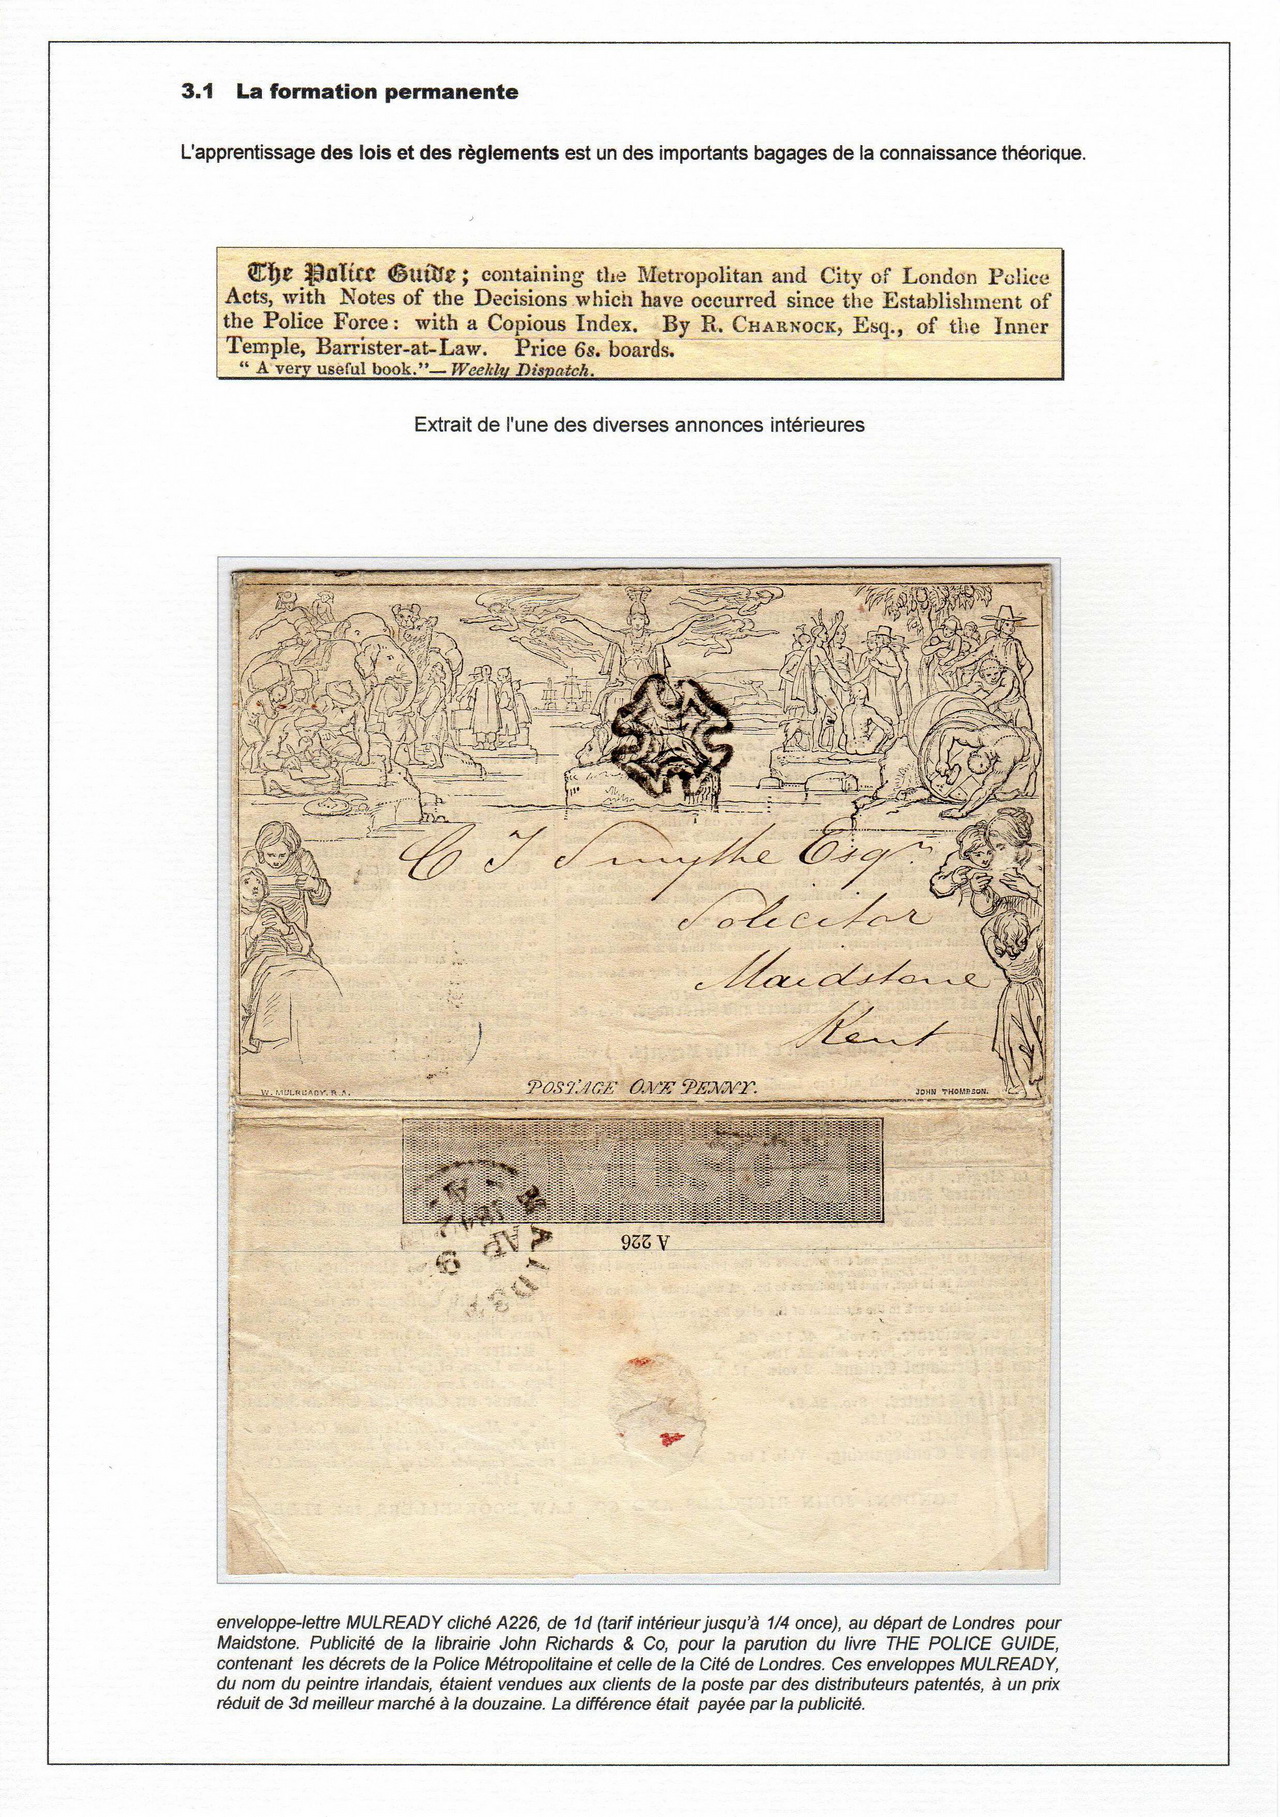 3.1 La formation permanente
L'apprentissage des lois et des règlements est un des importants bagages de la connaissance théorique.
The Police Guide; containing the Metropolitan and City of London Police
Acts, with Notes of the Decisions which have occurred since the Establishment of
the Police Force: with a Copious Index. By R. CHARNOCK, Esq., of the Inner
Temple, Barrister-at-Law. Price 6s. boards.
"A very useful book."—Weekly Dispatch.
Extrait de l'une des diverses annonces intérieures
C J Smythe Esqr
Solicitor
Maidstone
Kent
W. MULREADY. R.A.
POSTAGE ONE PENNY.
JOHN THOMPSON.
POSTA
A 226
MAIDST
A
AP 9
184
enveloppe-lettre MULREADY cliché A226, de 1d (tarif intérieur jusqu'à 1/4 once), au départ de Londres pour
Maidstone. Publicité de la librairie John Richards & Co, pour la parution du livre THE POLICE GUIDE,
contenant les décrets de la Police Métropolitaine et celle de la Cité de Londres. Ces enveloppes MULREADY,
du nom du peintre irlandais, étaient vendues aux clients de la poste par des distributeurs patentés, à un prix
réduit de 3d meilleur marché à la douzaine. La différence était payée par la publicité.